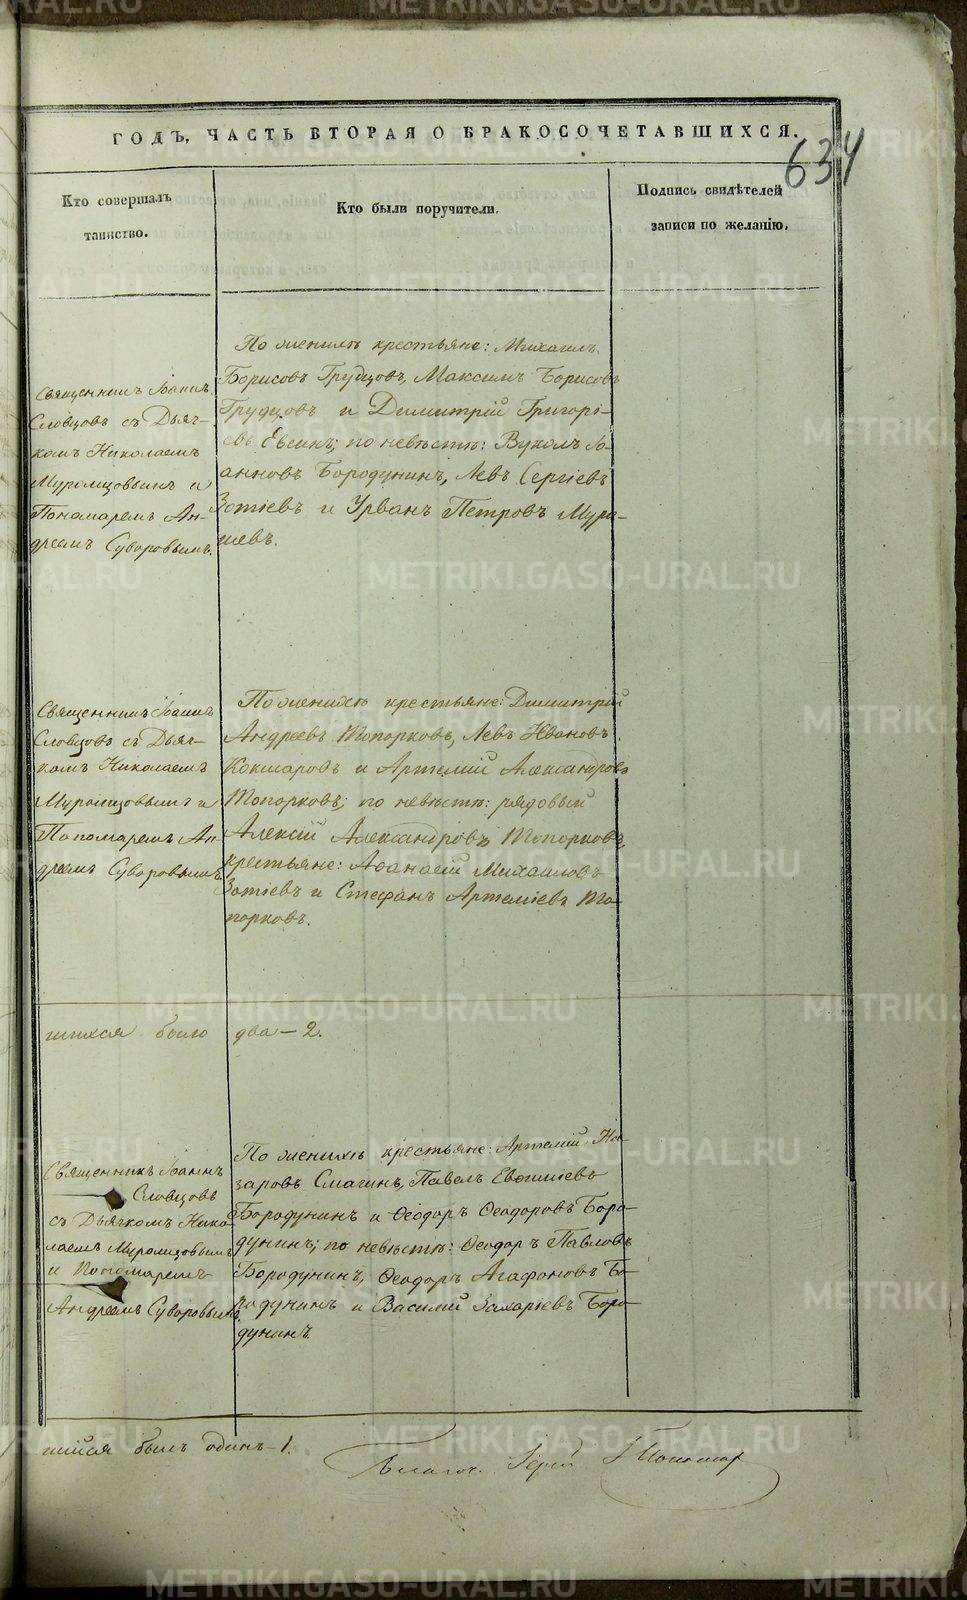 634
ГОДЪ, ЧАСТЬ ВТОРАЯ О БРАКОСОЧЕТАВШИХСЯ.
Кто совершалъ
таинство.
Кто были поручители.
Подпись свидѣтелей
записи по желанію.
Священникъ Іоаннъ
Словцовъ съ Дьяч-
комъ Николаемъ
Муромцовымъ и
Пономаремъ Ан-
дреемъ Суворовымъ.
По женихѣ крестьяне: Михаилъ
Борисовъ Грудцовъ, Максимъ Борисовъ
Грудцовъ и Димитрій Григорі-
евъ Евсинъ; по невѣстѣ: Вуколъ Іо-
анновъ Бородунинъ, Левъ Сергіевъ
Зотіевъ и Урванъ Петровъ Мура-
шевъ.
Священникъ Іоаннъ
Словцовъ съ Дьяч-
комъ Николаемъ
Муромцовымъ и
Пономаремъ Ан-
дреемъ Суворовымъ.
По женихѣ крестьяне: Димитрій
Андреевъ Топорковъ, Левъ Ивановъ
Кокшаровъ и Артемій Александровъ
Топорковъ; по невѣстѣ: рядовый
Алексій Александровъ Топорковъ,
крестьяне: Аѳанасій Михаиловъ
Зотіевъ и Стефанъ Артеміевъ То-
порковъ.
шихся было два - 2.
Священникъ Іоаннъ
Словцовъ
съ Дьячкомъ Нико-
лаемъ Муромцовымъ
и Пономаремъ
Андреемъ Суворовымъ.
По женихѣ крестьяне: Артемій На-
заровъ Смагинъ, Павелъ Евѳиміевъ
Бородунинъ и Ѳеодоръ Ѳеодоровъ Боро-
дунинъ; по невѣстѣ: Ѳеодоръ Павловъ
Бородунинъ, Ѳеодоръ Агафоновъ Бо-
родунинъ и Василій Захаріевъ Боро-
дунинъ.
шійся былъ одинъ - 1.
Благоч. Іерей
METRIKI.GASO-URAL.RU